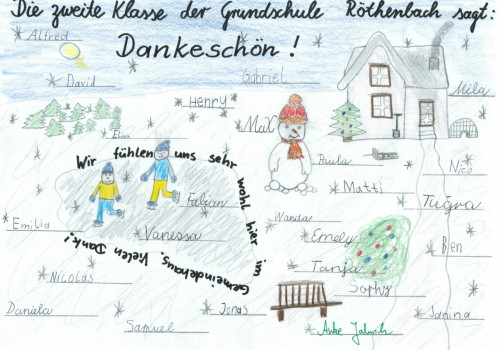 Die zweite Klasse der Grundschule Röthenbach sagt:
Dankeschön!
Alfred
David
Gabriel
Mila
Henry
Max
Elias
Wir fühlen uns sehr wohl hier im Gemeindehaus, Vielen Dank!
Paula
Nico
Matti
Fabian
Tuğra
Wanda
Emilia
Vanessa
Emely
Ben
Tanja
Nikolas
Sophy
Daniela
Jonas
Janina
Samuel
Anke